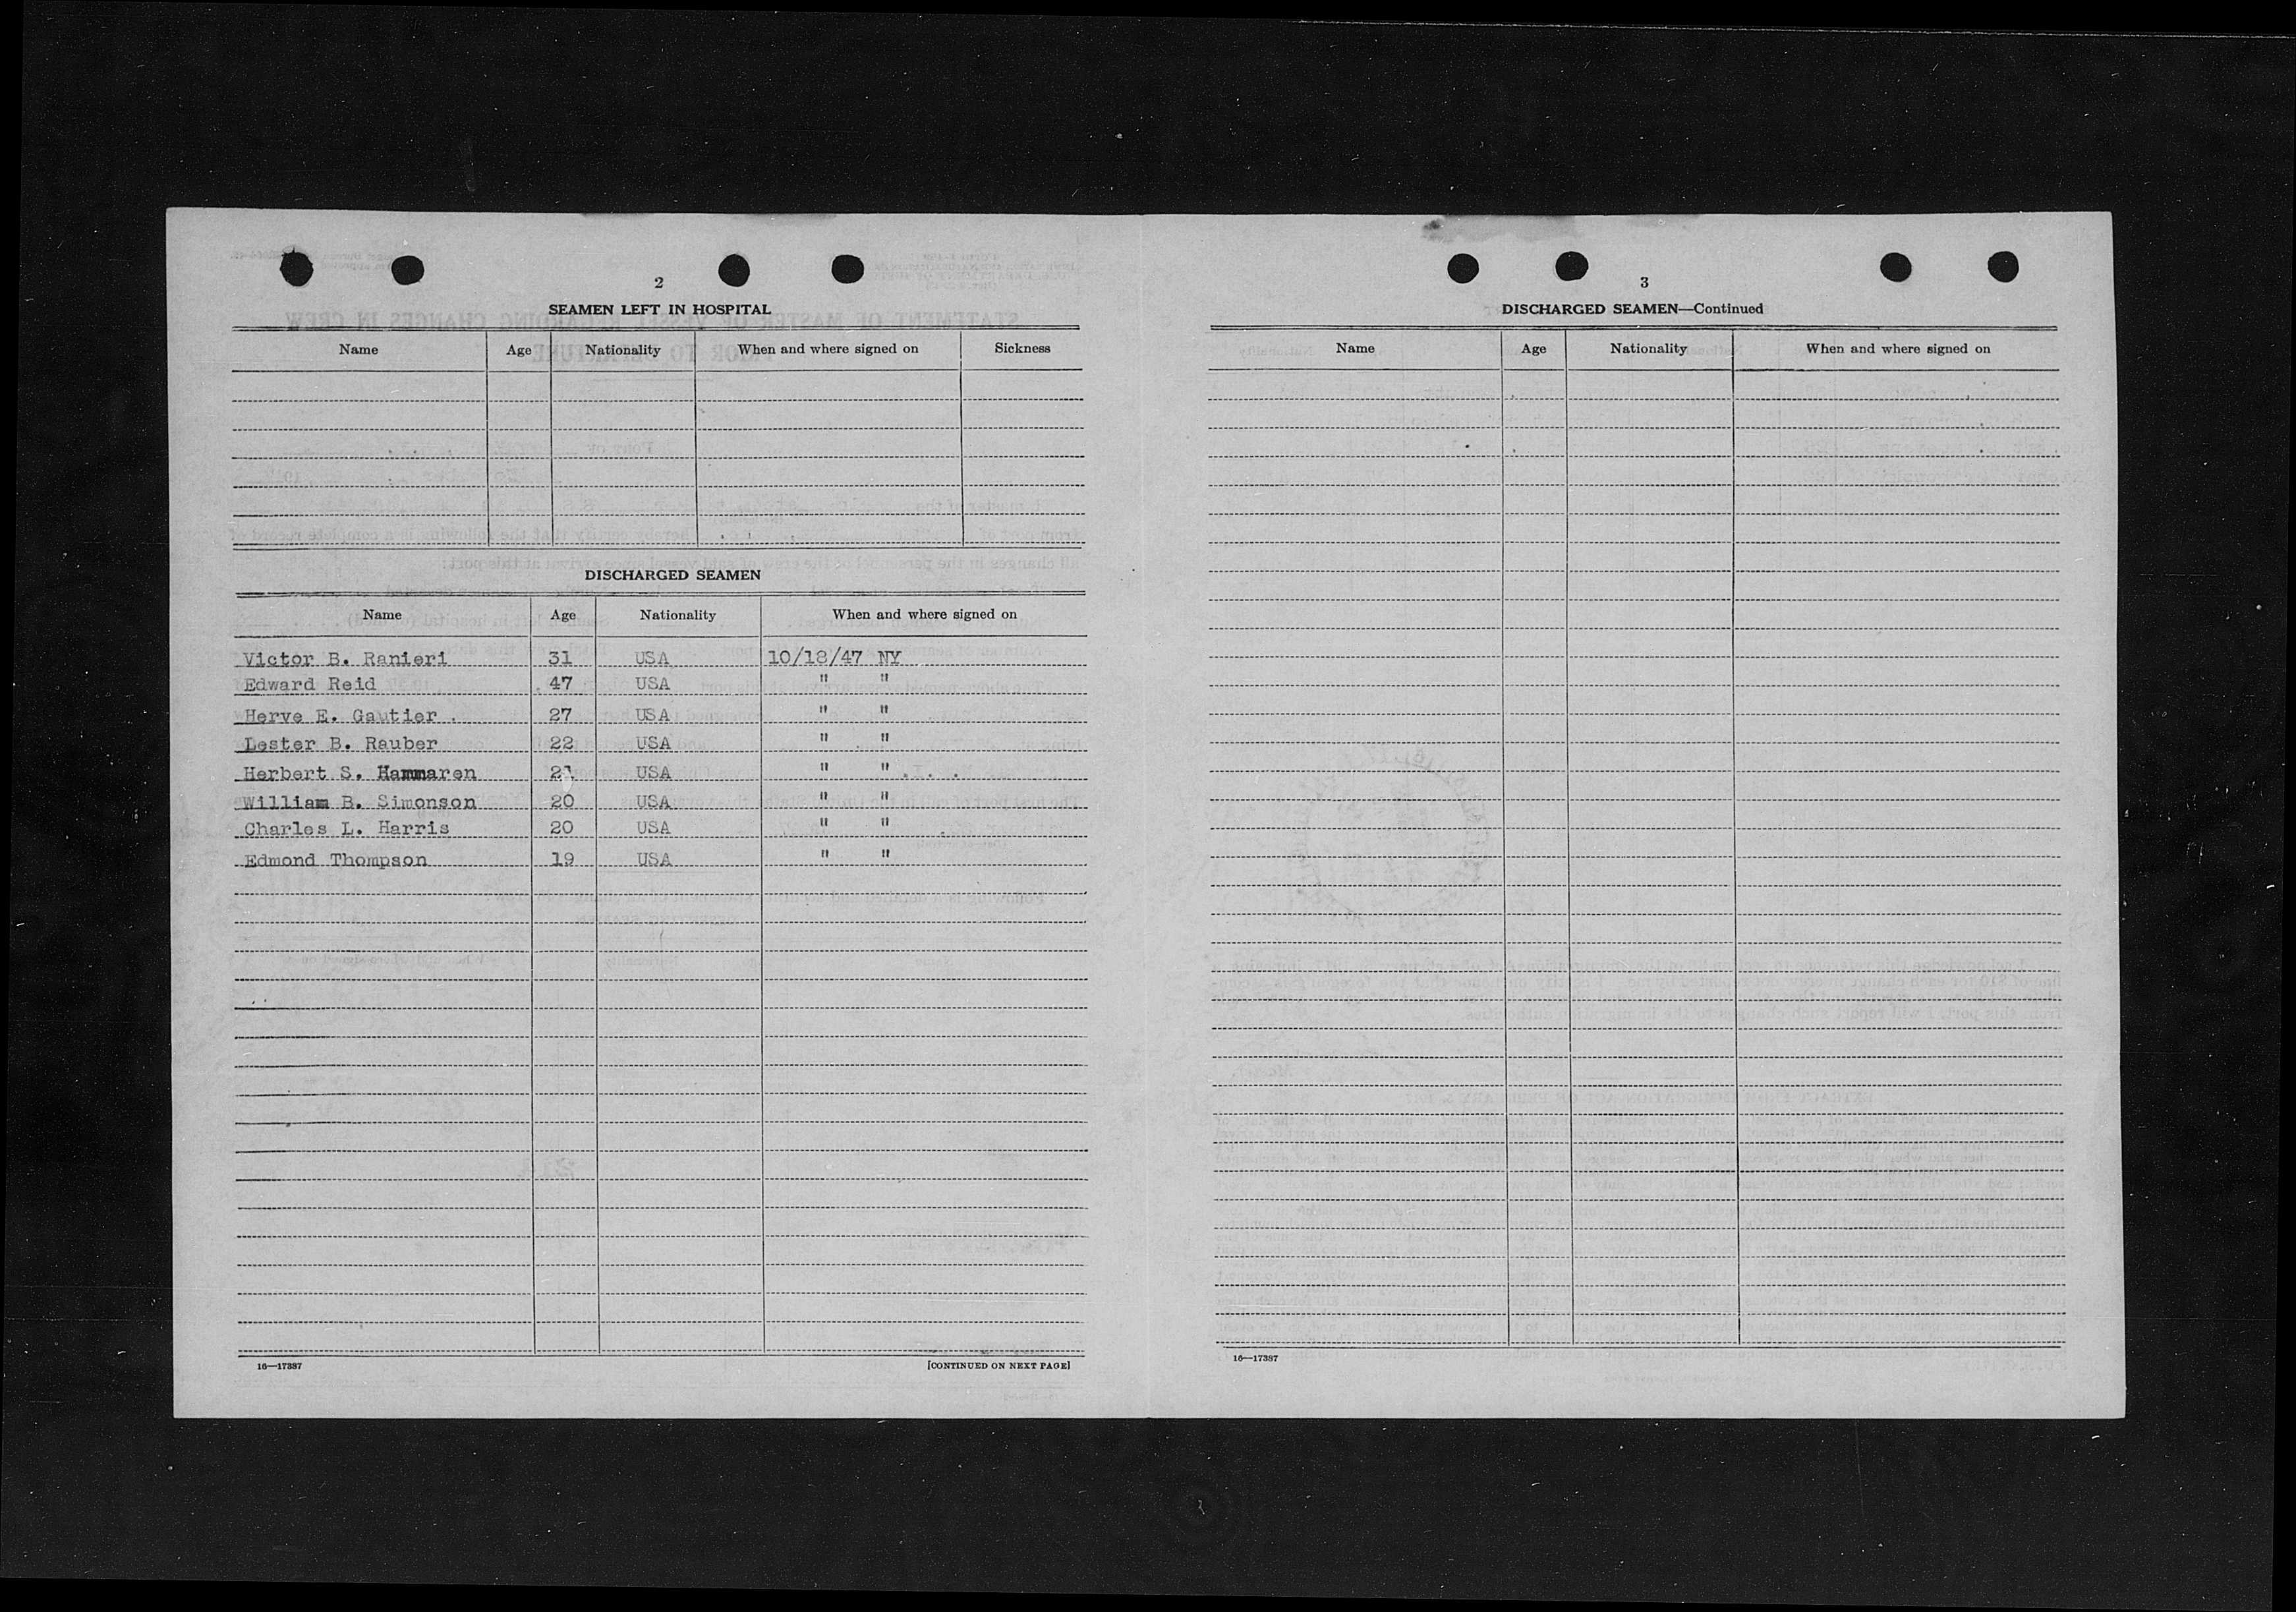 2
SEAMEN LEFT IN HOSPITAL
Name Age Nationality When and where signed on Sickness
DISCHARGED SEAMEN
Name Age Nationality When and where signed on
Victor B. Ranieri 31 USA 10/18/47 NY
Edward Reid 47 USA " "
Herve E. Gautier 27 USA " "
Lester B. Rauber 22 USA " "
Herbert S. Hammaren 21 USA " "
William B. Simonson 20 USA " "
Charles L. Harris 20 USA " "
Edmond Thompson 19 USA " "
16—17387 [CONTINUED ON NEXT PAGE]
3
DISCHARGED SEAMEN—Continued
Name Age Nationality When and where signed on
16—17387